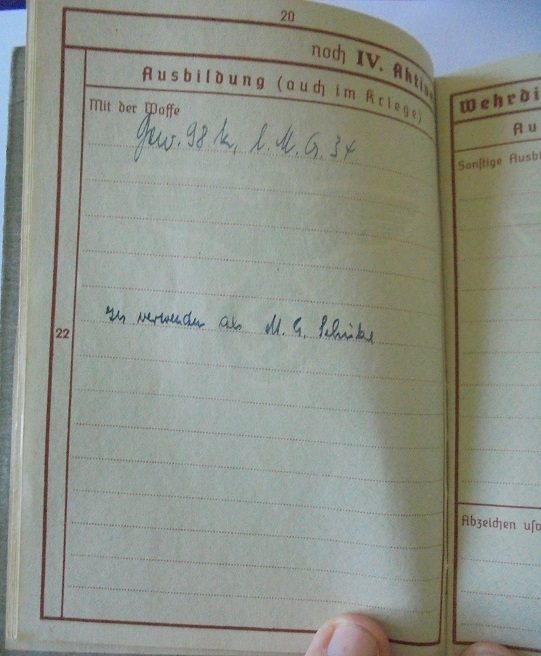 20
noch IV. Akti
Ausbildung (auch im Kriege)
Mit der Waffe
Gew. 98 k, l. M. G. 34
22
zu verwenden als M. G. Schütze
Wehrdi
Au
Sonstige Ausbi
Abzeichen uſw